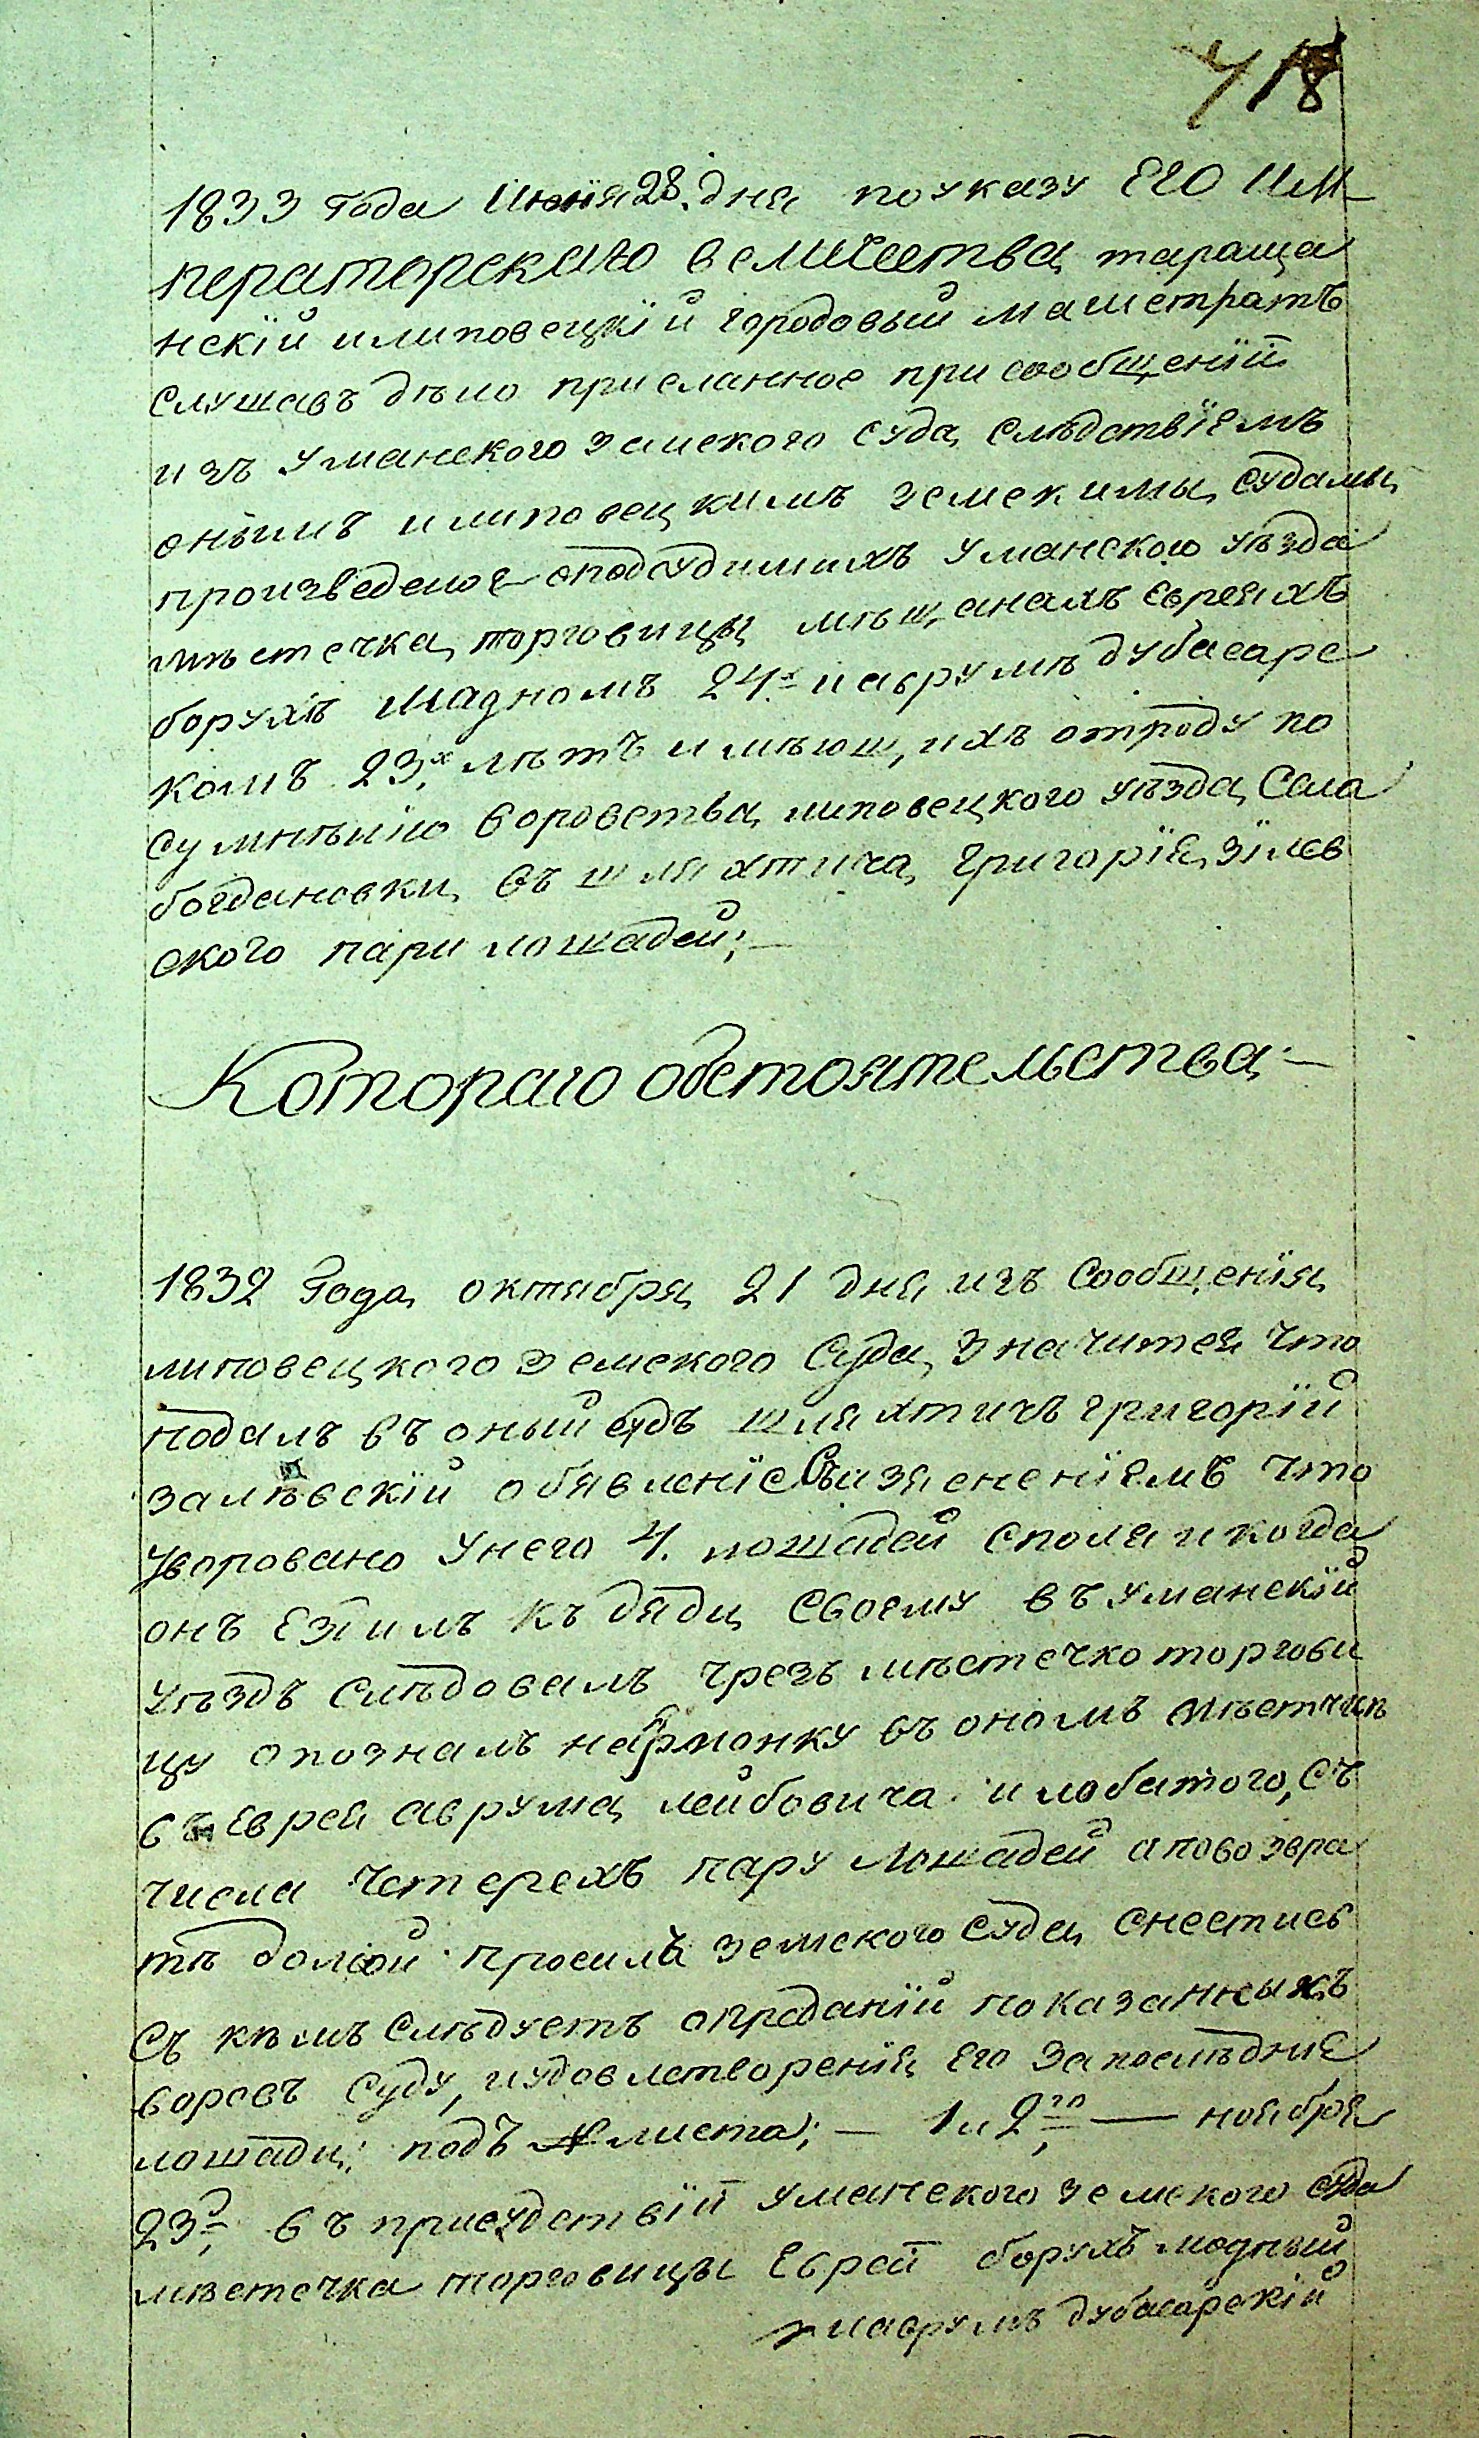 418
1833 Года Июня 28. дня по указу ЕГО ИМ-
ператорскаго величества, тараща
нскій илиповецкій городовый магистратъ
слушавъ дѣло присланное при сообщеніи
изъ Уманского земского суда, слѣдствіемъ
онымъ илиповецкимъ земскимы, судамы,
произведеное оподсудимихъ Уманского уѣзда
мѣстечка, торговицы, мѣщанахъ Евреяхъ
борухѣ Модномъ 24х иаврумѣ дубасарс
комъ 23,х лѣтъ имѣющихъ отроду по
сумнѣнію воровства, липовецкого уѣзда, Села
богдановки, въ шляхтича, григорія, зілев
ского пари лошадей; —
Котораго обстоятельства, —
1832 Года, октября, 21 дня изъ Сообщенія,
липовецкого земского Суда, значится что
подалъ въ оный судъ шляхтичъ григорій
залѣвскій обявленіе Съизясненіемъ что
уворовано Унего 4. лошадей споля икогда
онъ Ездилъ къ дяди, своему въ Уманскій
уѣздъ Слѣдовалъ чрезъ мѣстечко торгови
цу опозналъ наярмонку въ ономъ мѣстчкѣ
въ Еврея аврума, лейбовича илобатого, Съ
числа Четерехъ пару лошадей аповозвра
тѣ домой просилъ земского суда, снестись
Съ кѣмъ слѣдуетъ опреданіи показанныхъ
воровъ суду, иудовлетворенія, Его запослѣдніе
лошади; подъ № листа; — 1 и 2м — ноября
23д, въ присудствіи Уманского земского суда
мѣстечка торговицы Еврей борухъ модный
иаврумъ дубасарскій